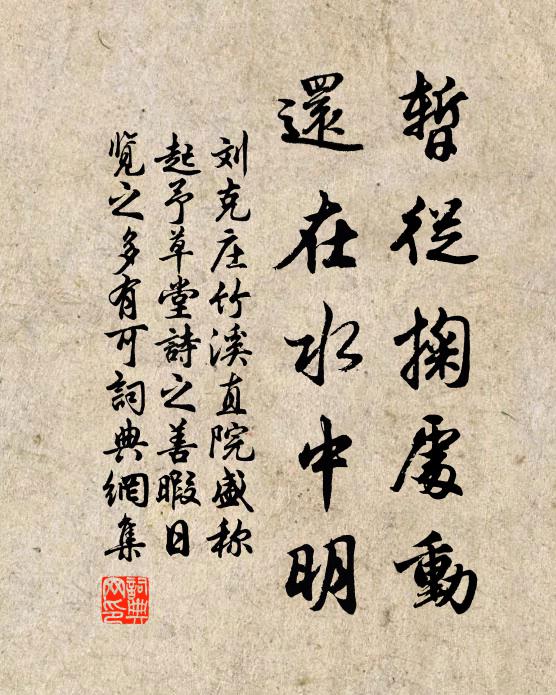 暫從掬處動
還在水中明
刘克庄竹溪直院盛称
起予草堂詩之善暇日
览之多有可詞典網集
詞典網印